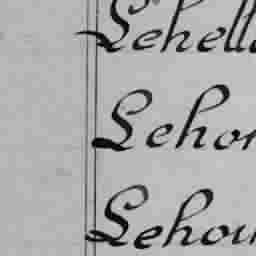 Lehella
Lehor
Lehou